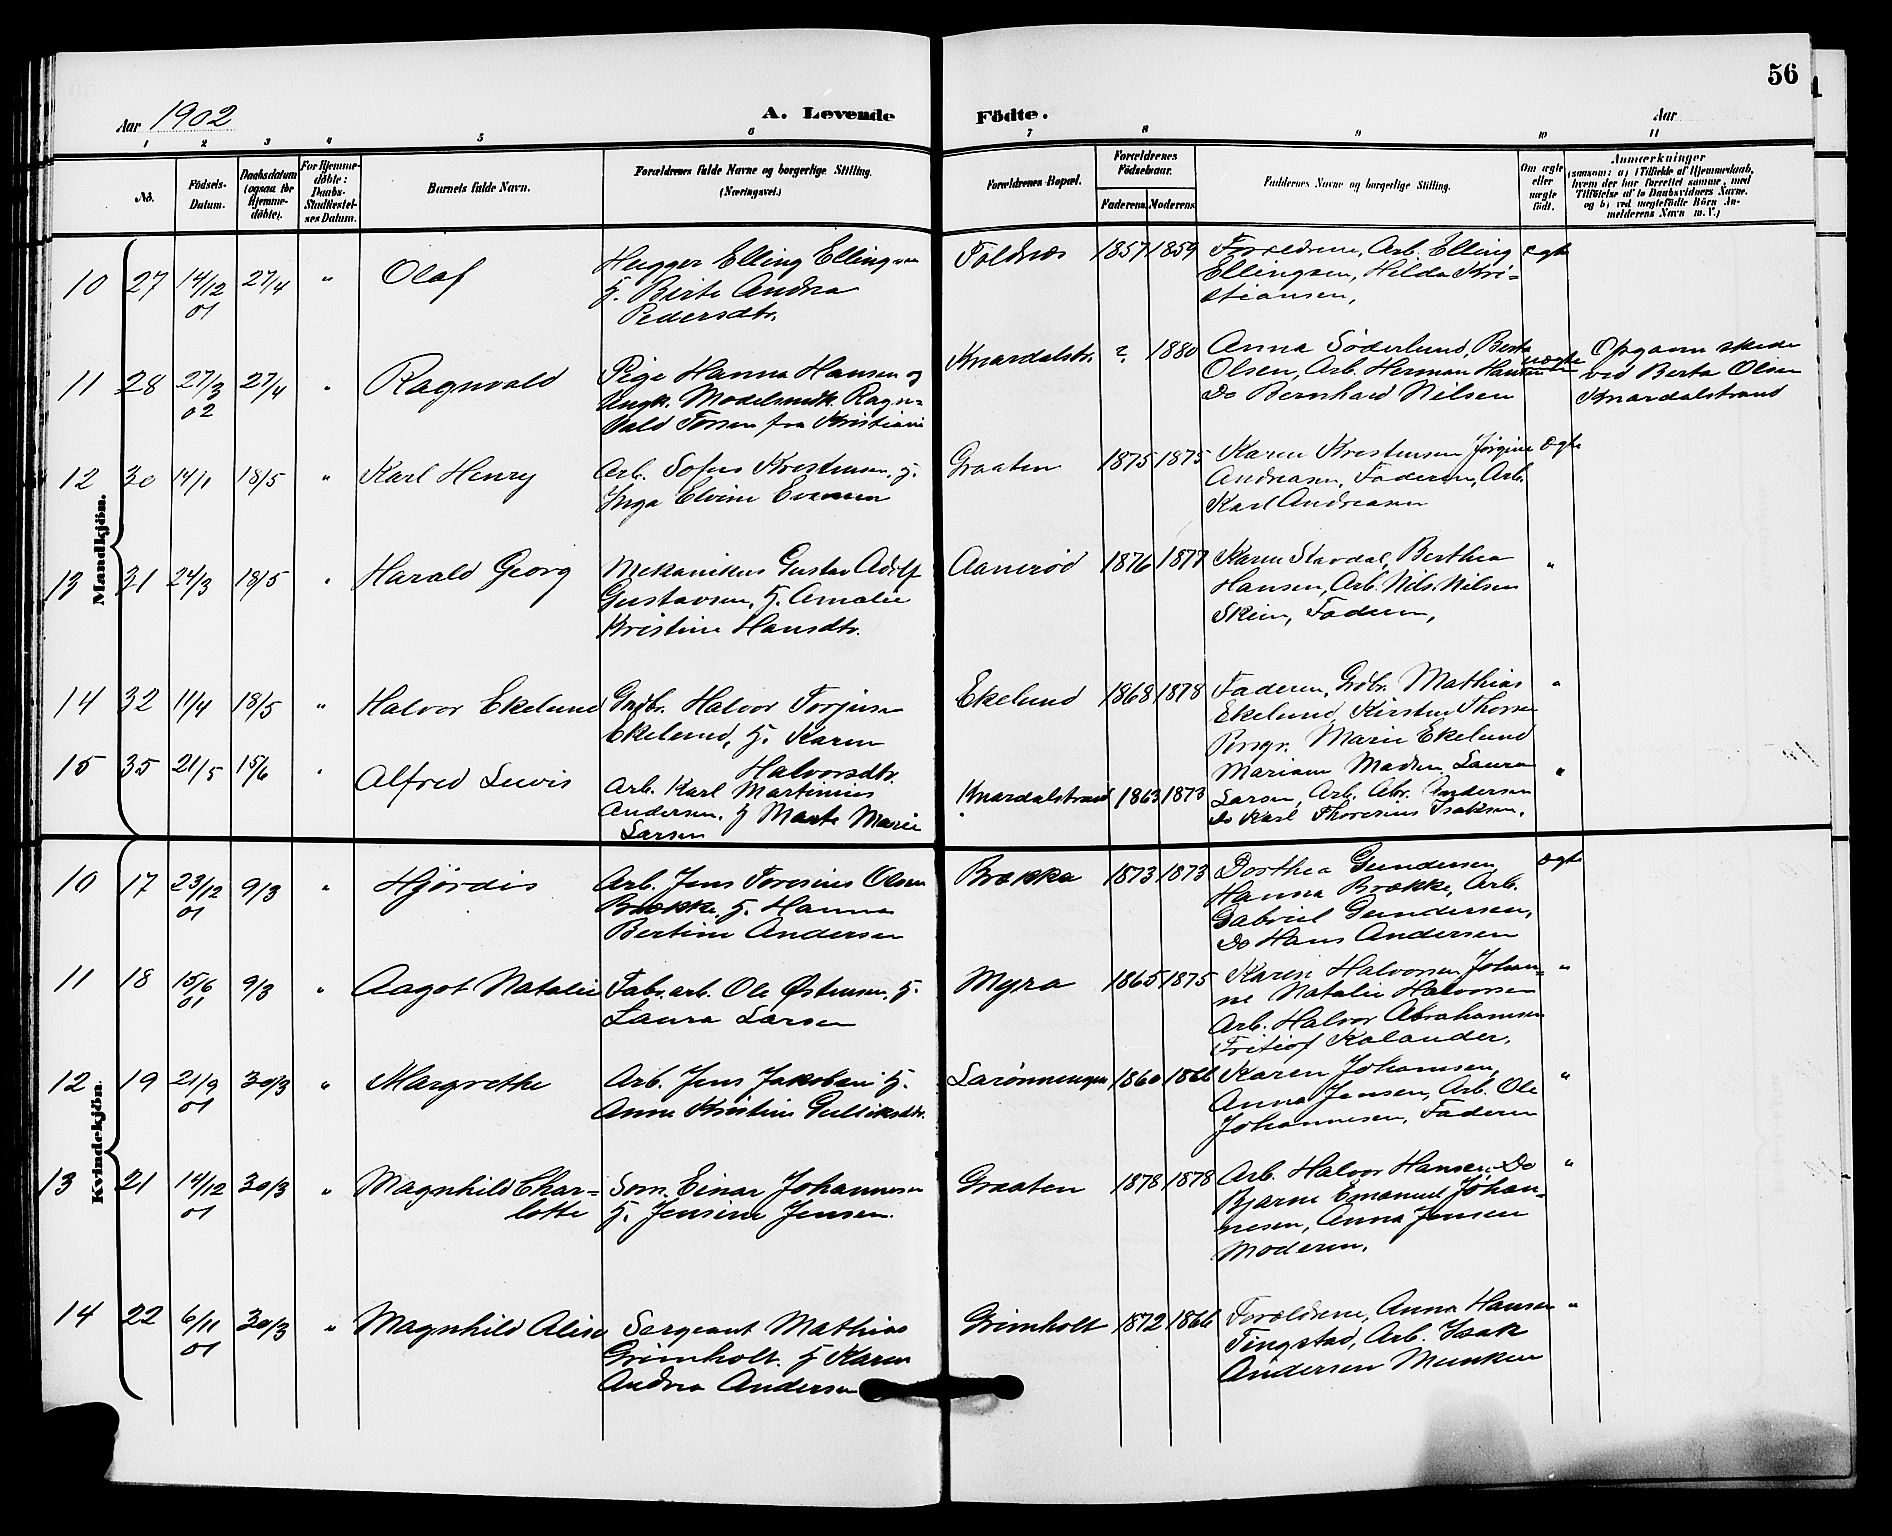 56
Aar 1902
A. Levende Födte.
Aar
1 2 3 4 5 6 7 8 9 10 11
No.
Födsels-
Datum.
Daabsdatum
(ogsaa for
Hjemme-
döbte).
For Hjemme-
döbte:
Daabs-
Stadfæstel-
ses Datum.
Barnets fulde Navn.
Forældrenes fulde Navne og borgerlige Stilling.
(Næringsvei.)
Forældrenes Bopæl.
Forældrenes
Födselsaar.
Faderens. Moderens.
Faddernes Navne og borgerlige Stilling.
Om ægte
eller
uægte
født.
Anmærkninger
(saasom: a) i Tilfælde af Hjemmedaab,
hvem der har forrettet samme, med
Tilföielse af to Daabsvidners Navne,
og b) ved uægtefödte Börn An-
melderens Navn m. V.)
Mandkjön.
10 27 14/12 01 27/4 " Olaf
Hugger Elling Ellingsen
H. Birte Andrea
Pedersdtr.
Foldnes 1857 1859
Forældrene, Arb. Elling
Ellingsen, Hilda Kri-
stiansen,
ægte
11 28 27/3 02 27/4 " Ragnvald
Pige Hanna Hansen og
Ungk. Modelsnedk. Ragn-
vald Torsen fra Kristiania
Knardalstr. ? 1880
Anna Söderlund, Berta
Olsen, Arb. Herman Hansen
Do Bernhard Nilsen
uægte
Opgaven skede
ved Berta Olsen
Knardalstrand
12 30 14/1 18/5 " Karl Henry
Arb. Sofus Kristensen, H.
Inga Elvine Evensen
Graaten 1875 1875
Karen Kristensen Jørgine
Andreasen, Faderen, Arb.
Karl Andreasen
ægte
13 31 24/3 18/5 " Harald Georg
Mekanikus Gustav Adolf
Gustavsen, H. Amalie
Kristine Hansdtr.
Aanerød 1876 1877
Karen Stavdal, Berthea
Hansen, Arb. Nils Nilsen
Skien, Faderen,
"
14 32 11/4 18/5 " Halvor Ekelund
Grdbr. Halvor Torjusen
Ekelund, H. Karen
Halvorsdtr.
Ekelund 1868 1878
Faderen, Grdbr. Mathias
Ekelund, Kirsten Thorsen
Pengr. Marie Ekelund
"
15 35 21/5 15/6 " Alfred Lewis
Arb. Karl Martinius
Andersen, H Marte Marie
Larsen
Knardalstrand 1863 1873
Mariane Madsen, Laura
Larsen, Arb. Abr. Andersen
Do Karl Thoresius Isaksen.
"
Kvindekjön.
10 17 23/12 01 9/3 " Hjørdis
Arb. Jens Toresius Olsen
Brække, H. Hanna
Bertine Andersen
Brække 1873 1873
Dorthea Gundersen
Hanna Brække, Arb.
Gabriel Gundersen,
Do Hans Andersen
ægte
11 18 15/6 01 9/3 " Aagot Natalie
Fabr.arb. Ole Østensen, H.
Laura Larsen
Myra 1865 1875
Karen Halvorsen Johan-
ne Natalie Halvorsen
Arb. Halvor Abrahamsen
Fritiof Kalander,
"
12 19 21/9 01 30/3 " Margrethe
Arb. Jens Jakobsen H.
Anne Kristine Gulliksdtr.
Larønningen 1860 1866
Karen Johannsen,
Anna Jensen, Arb. Ole
Johannesen, Faderen
"
13 21 14/12 01 30/3 " Magnhild Char-
lotte
Søm. Einar Johannesen
H. Jensine Jensen.
Graaten 1878 1878
Arb. Halvor Hansen, Do
Bjarne Emanuel Johan-
nesen, Anna Jensen
Moderen,
"
14 22 6/11 01 30/3 " Magnhild Alise
Sergeant Mathias
Grimholt. H Karen
Andrea Andersen
Grimholt 1872 1866
Forældrene, Anna Hansen
Tingstad, Arb. Isak
Andersen Munken
"